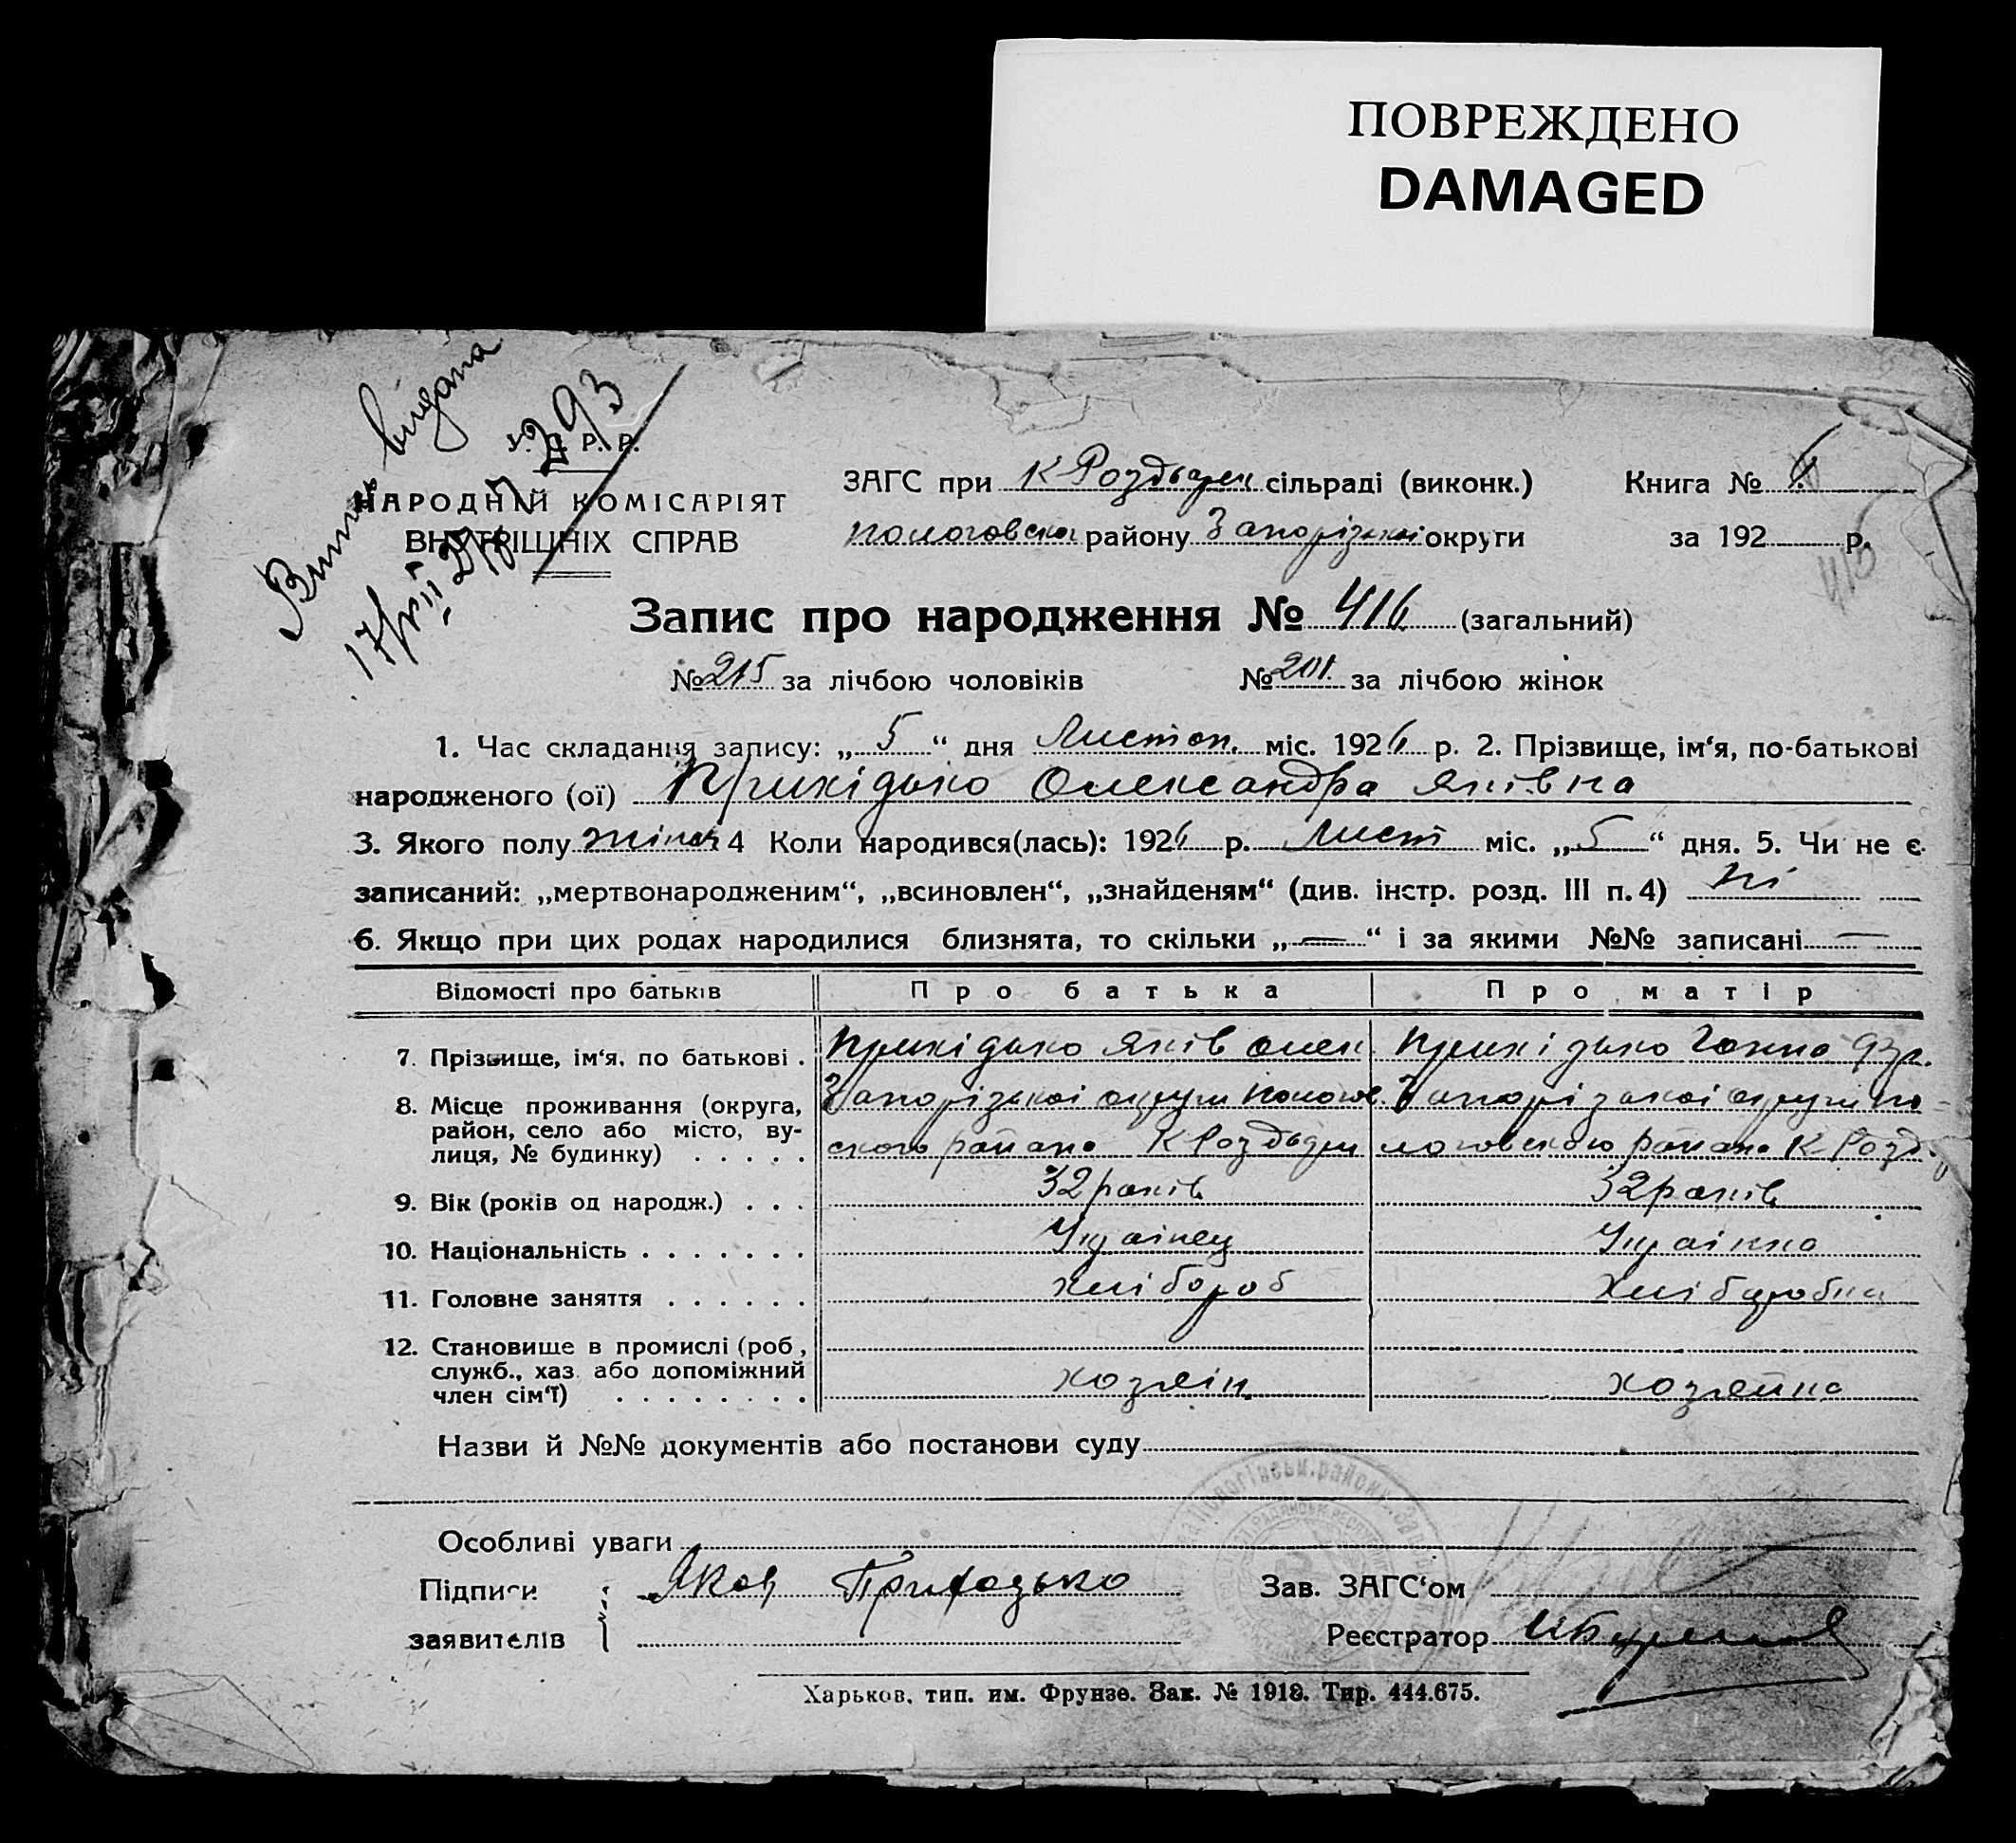 ПОВРЕЖДЕНО
DAMAGED
Випис видана
У. С. Р. Р.
НАРОДНІЙ КОМІСАРІЯТ
ВНУТРІШНІХ СПРАВ
ЗАГС при К Роздърск сільраді (виконк.) Книга №
пологовска району Запорізькоі округи за 192 р.
415
Запис про народження № 416 (загальний)
№ 215 за лічбою чоловіків № 201 за лічбою жінок
1. Час складання запису: „ 5 “ дня Листоп. міс. 1926 р. 2. Прізвище, ім‘я, по-батькові
народженого (ої) Прихідько Олександра Яківна
3. Якого полу жіноч 4 Коли народився(лась): 1926 р. Лист міс. „ 5 “ дня. 5. Чи не є
записаний: „мертвонародженим“, „всиновлен“, „знайденям“ (див. інстр. розд. III п. 4) ні
6. Якщо при цих родах народилися близнята, то скільки „ — “ і за якими №№ записані —
Відомості про батьків Про батька Про матір
7. Прізвище, ім‘я, по батькові . Прихідько Яків олек Прихідько Ганна
8. Місце проживання (округа, Запорізькоі округи пологов. Запорізькоі округи по-
район, село або місто, ву- ского район. К Роздърск логовского район. К-Розд.
лиця, № будинку) . . . . .
9. Вік (років од народж.) . . . 32 років 32 років
10. Національність . . . . . . . Украінец Украінка
11. Головне заняття . . . . . . хлібороб Хліборобка
12. Становище в промислі (роб,
служб., хаз. або допоміжний
член сім‘ї) . . . . . . . . хозяін. хозяйка
Назви й №№ документів або постанови суду
Особливі уваги
Підписи Яков Приходько Зав. ЗАГС‘ом
заявителів Реєстратор
Харьков, тип. им. Фрунзе. Зак. № 1918. Тир. 444.675.